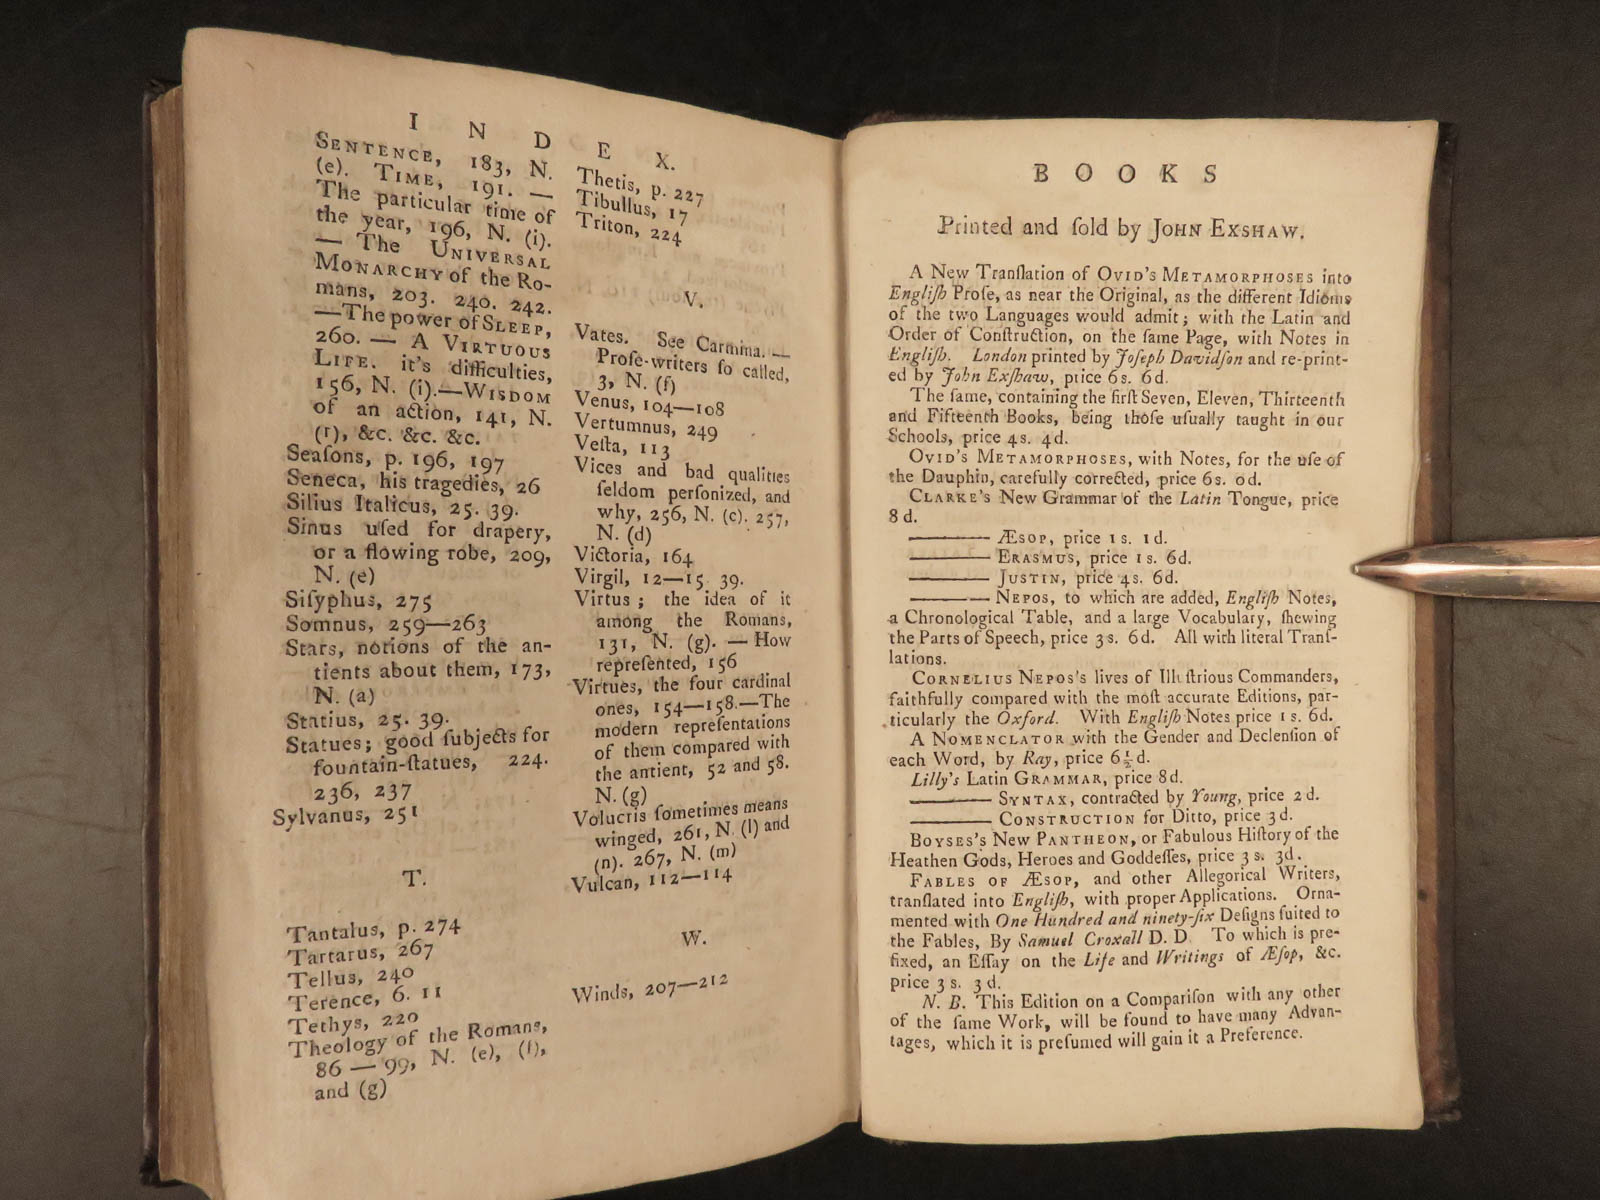 I N D E X.
SENTENCE, 183, N.
(e). TIME, 191. —
The particular time of
the year, 196, N. (i).
— The UNIVERSAL
MONARCHY of the Ro-
mans, 203. 240. 242.
—The power of SLEEP,
260. — A VIRTUOUS
LIFE. it's difficulties,
156, N. (i).—WISDOM
of an action, 141, N.
(r), &c. &c. &c.
Seaſons, p. 196, 197
Seneca, his tragedies, 26
Silius Italicus, 25. 39.
Sinus uſed for drapery,
or a flowing robe, 209,
N. (e)
Siſyphus, 275
Somnus, 259—263
Stars, notions of the an-
tients about them, 173,
N. (a)
Statius, 25. 39.
Statues; good ſubjects for
fountain-ſtatues, 224.
236, 237
Sylvanus, 251
T.
Tantalus, p. 274
Tartarus, 267
Tellus, 240
Terence, 6. 11
Tethys, 220
Theology of the Romans,
86 — 99, N. (e), (f),
and (g)
Thetis, p. 227
Tibullus, 17
Triton, 224
V.
Vates. See Carmina. —
Proſe-writers ſo called,
3, N. (f)
Venus, 104—108
Vertumnus, 249
Veſta, 113
Vices and bad qualities
ſeldom perſonized, and
why, 256, N. (c). 257,
N. (d)
Victoria, 164
Virgil, 12—15. 39.
Virtus; the idea of it
among the Romans,
131, N. (g). — How
repreſented, 156
Virtues, the four cardinal
ones, 154—158.—The
modern repreſentations
of them compared with
the antient, 52 and 58.
N. (g)
Volucris ſometimes means
winged, 261, N. (l) and
(n). 267, N. (m)
Vulcan, 112—114
W.
Winds, 207—212
B O O K S
Printed and ſold by JOHN EXSHAW.
A New Tranſlation of OVID'S METAMORPHOSES into
Engliſh Proſe, as near the Original, as the different Idioms
of the two Languages would admit; with the Latin and
Order of Conſtruction, on the ſame Page, with Notes in
Engliſh. London printed by Joſeph Davidſon and re-print-
ed by John Exſhaw, price 6s. 6d.
The ſame, containing the firſt Seven, Eleven, Thirteenth
and Fifteenth Books, being thoſe uſually taught in our
Schools, price 4s. 4d.
OVID'S METAMORPHOSES, with Notes, for the uſe of
the Dauphin, carefully corrected, price 6s. 0d.
CLARKE'S New Grammar of the Latin Tongue, price
8d.
——— ÆSOP, price 1s. 1d.
——— ERASMUS, price 1s. 6d.
——— JUSTIN, price 4s. 6d.
——— NEPOS, to which are added, Engliſh Notes,
a Chronological Table, and a large Vocabulary, ſhewing
the Parts of Speech, price 3s. 6d. All with literal Tranſ-
lations.
CORNELIUS NEPOS's lives of Illuſtrious Commanders,
faithfully compared with the moſt accurate Editions, par-
ticularly the Oxford. With Engliſh Notes price 1s. 6d.
A NOMENCLATOR with the Gender and Declenſion of
each Word, by Ray, price 6½d.
Lilly's Latin GRAMMAR, price 8d.
——— SYNTAX, contracted by Young, price 2d.
——— CONSTRUCTION for Ditto, price 3d.
BOYSES's New PANTHEON, or Fabulous Hiſtory of the
Heathen Gods, Heroes and Goddeſſes, price 3s. 3d.
FABLES OF ÆSOP, and other Allegorical Writers,
tranſlated into Engliſh, with proper Applications. Orna-
mented with One Hundred and ninety-ſix Deſigns ſuited to
the Fables, By Samuel Croxall D. D. To which is pre-
fixed, an Eſſay on the Life and Writings of Æſop, &c.
price 3s. 3d.
N. B. This Edition on a Compariſon with any other
of the ſame Work, will be found to have many Advan-
tages, which it is preſumed will gain it a Preference.